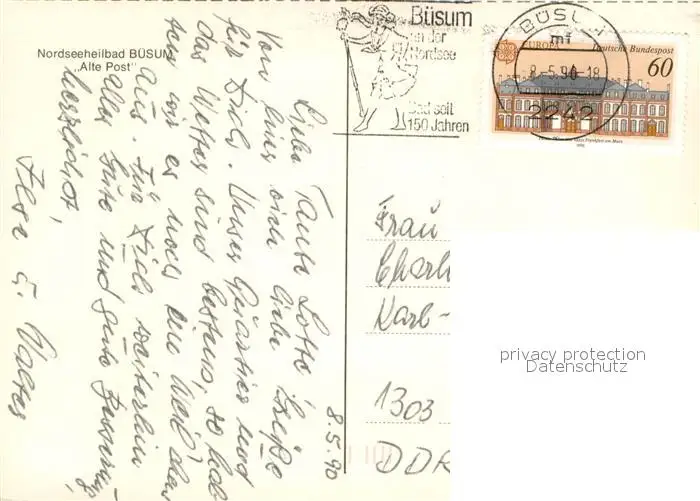 Nordseeheilbad BÜSUM
„Alte Post"
Büsum
an der
Nordsee
Bad seit
150 Jahren
BÜSUM
mf
-8.-5.90-18
2242
EUROPA Deutsche Bundespost
60
8.5.90
Liebe Tante Lotte,
von hier viele liebe Grüße
für Dich. Unser Quartier und
das Wetter sind bestens, so
wir es noch eine Weil
aus. Für Dich weiterhin
alles Gute und gute Besserung,
herzlichst,
Ilse u. Walter
Frau
Charl
Karl-
1303
DDR
privacy protection
Datenschutz